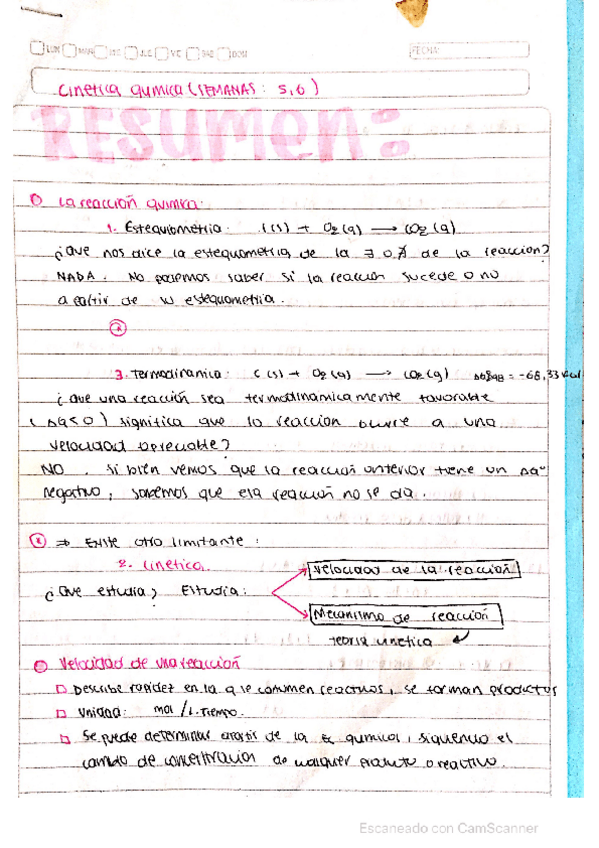 LUN MAR MIE JUE VIE SAB DOM FECHA:
Cinetica quimica (SEMANAS: 5,6)
RESUMEN:
La reacción quimica:
1. Estequiometria: C(s) + O2(g) → CO2(g)
¿Que nos dice la estequiometria de la ∃ o ∄ de la reaccion?
NADA. No podemos saber si la reaccion sucede o no
a partir de su estequiometria.
*
3. Termodinamica: C(s) + O2(g) → CO2(g)
¿Que una reacción sea termodinamicamente favorable
(ΔG<0) significa que la reaccion ocurre a una
velocidad apreciable?
NO. Si bien vemos que la reaccion anterior tiene un ΔG°
negativo, sabemos que esa reaccion no se da.
* ⇒ Existe otro limitante:
2. Cinetica.
Velocidad de la reacción
¿Que estudia? Estudia:
Mecanismo de reacción
teoria cinetica
Velocidad de una reacción
Describe rapidez en la q se consumen reactivos, se forman productos
Unidad: mol/L.tiempo.
Se puede determinar apartir de la Ec quimica, siguiendo el
cambio de concentracion de cualquier producto o reactivo.
Escaneado con CamScanner